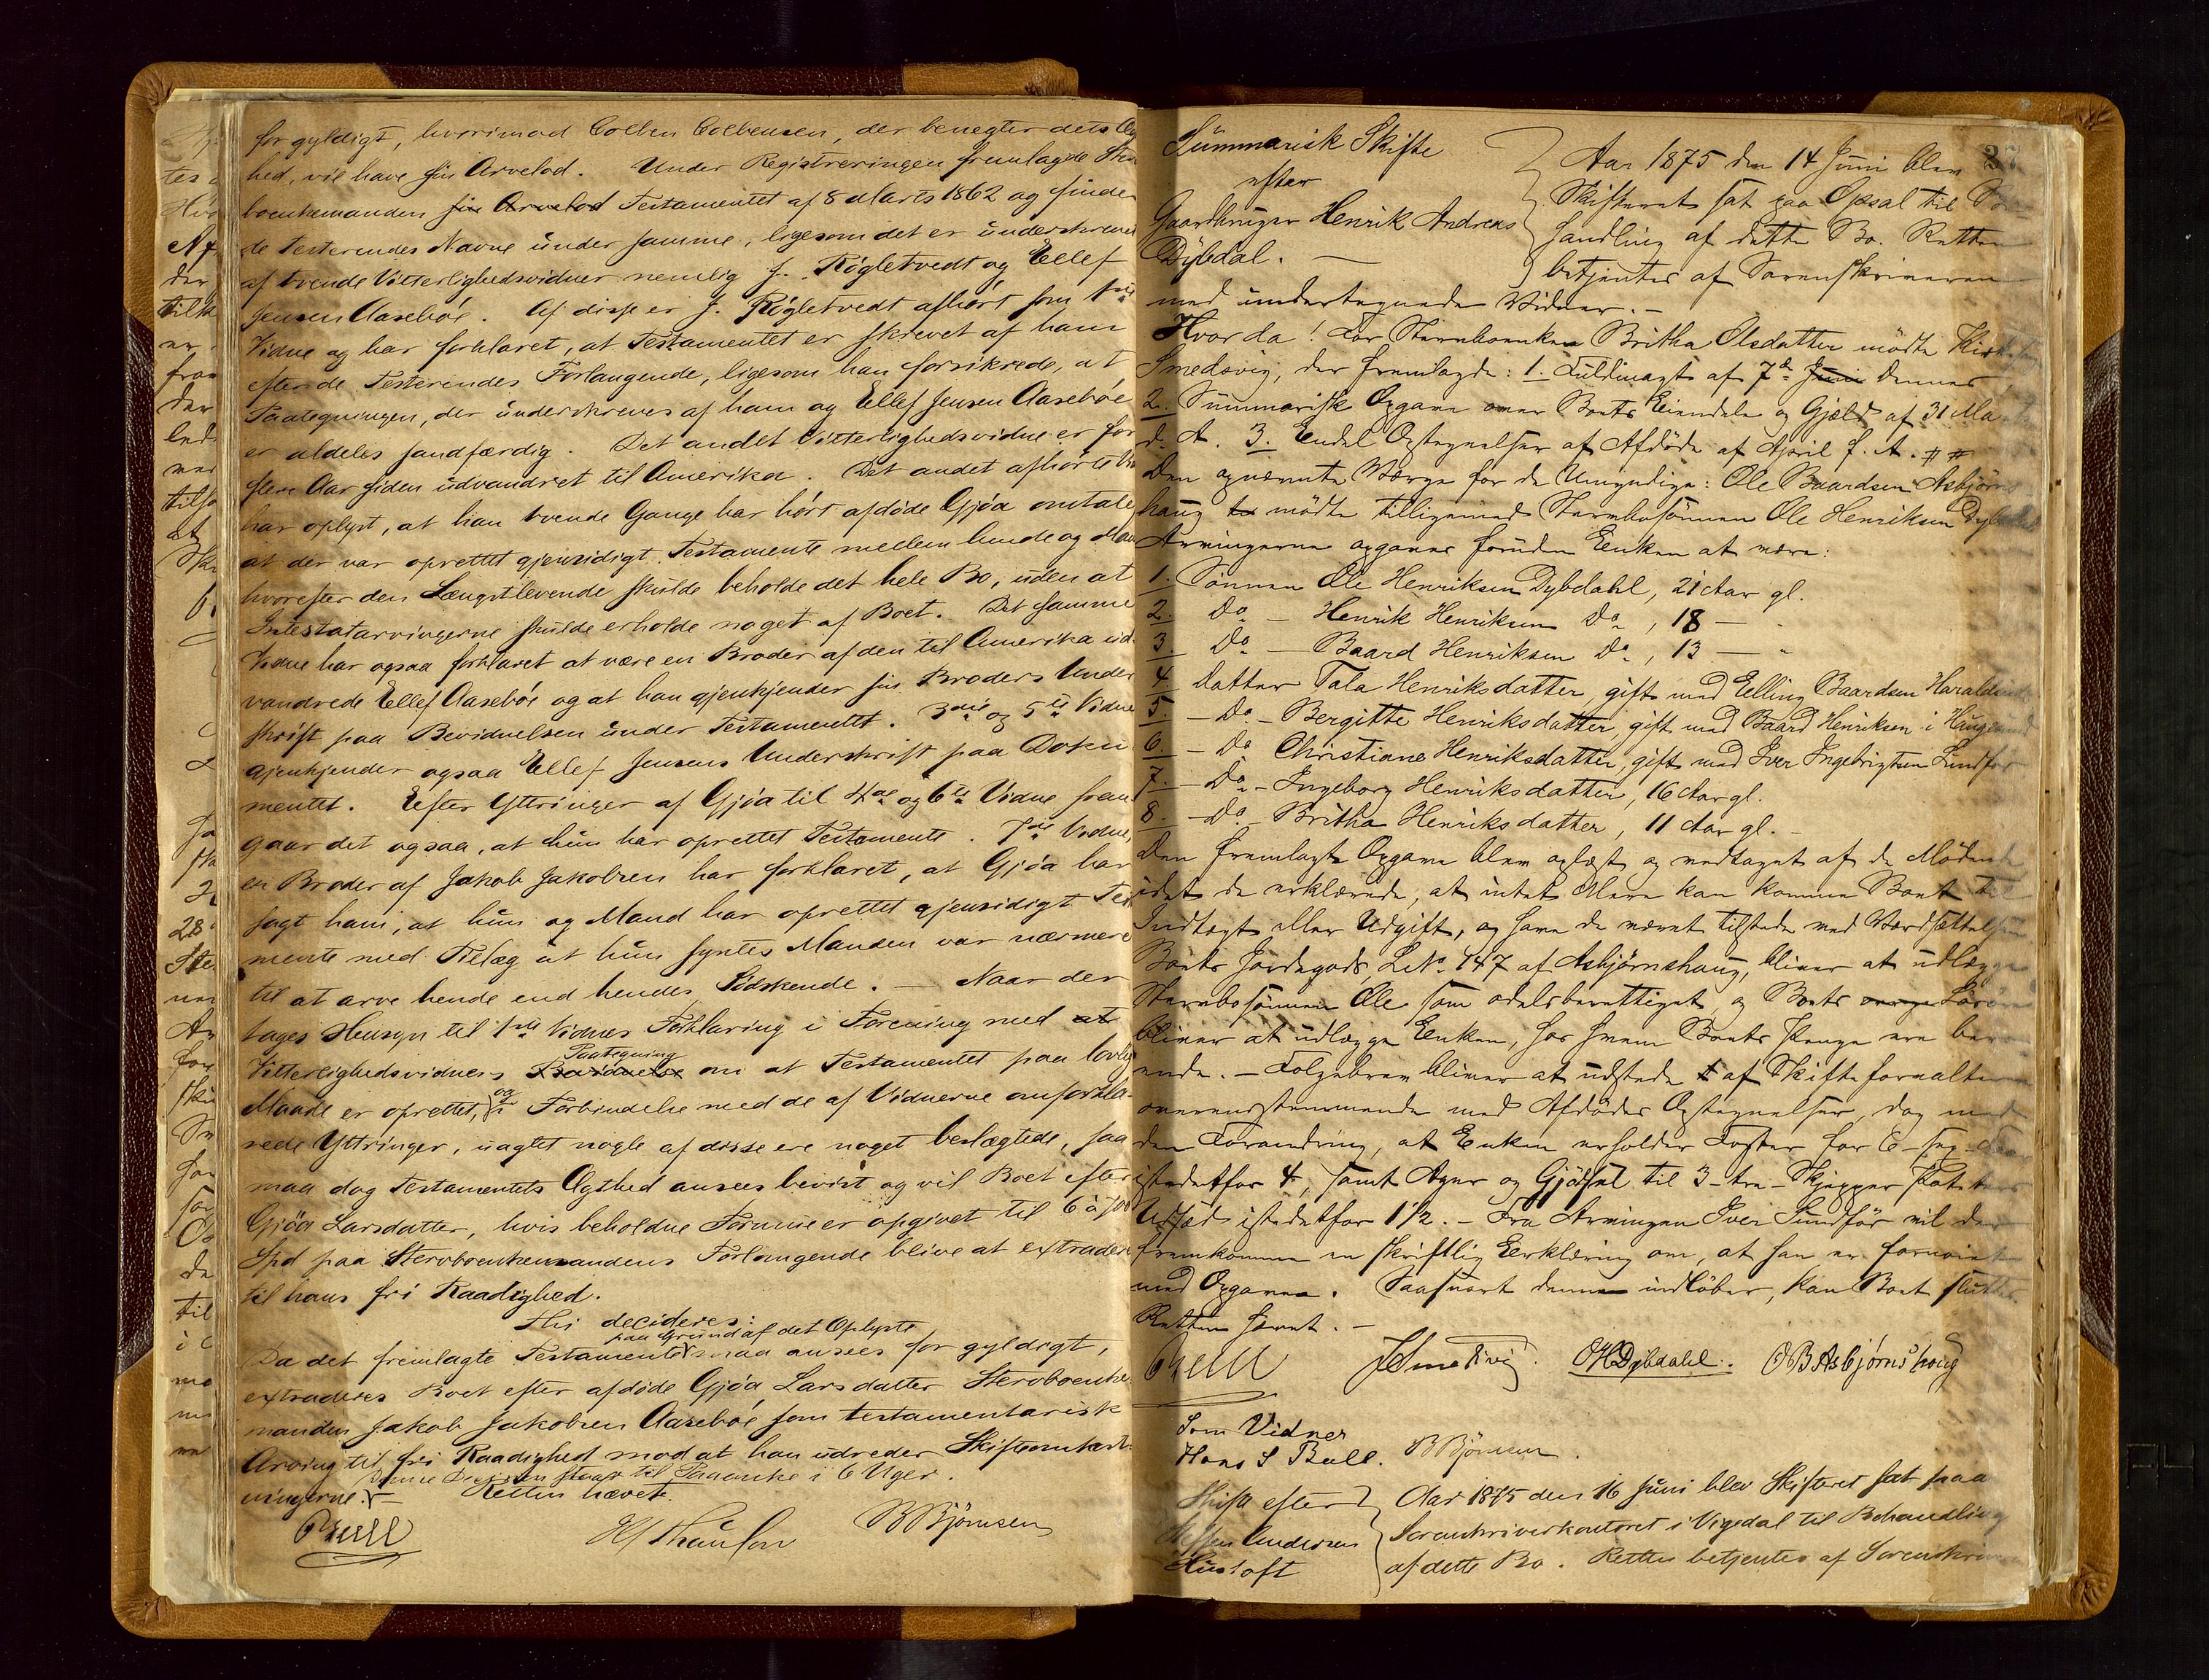 for gyldigt, hvorimod Colben Colbensen, der benegter dets Æg
hed, vil have sin Arvelod. Under Registreringen fremlagde Ster
boenkemanden sin Arvelod Testamentet af 8 Marts 1862 og finde
de Testerendes Navne under samme, ligesom det er underskrevet
af tvende Vitterlighedsvidner nemlig J. Røgletvedt og Ellef
Jensen Aasebøe. Af disse er J. Røgletvedt afhørt som 1ste
Vidne og har forklaret, at Testamentet er skrevet af ham
efter de Testerendes Forlangende, ligesom han forsikrede, at
Paategningen, der underskreves af ham og Ellef Jensen Aasebøe
er aldeles sandfærdig. Det andet Vitterlighedsvidne er for
flere Aar siden udvandret til Amerika. Det andet afhørte Vid
har oplyst, at han tvende Gange har hørt afdøde Gjøa omtale
at der var oprettet gjensidigt Testamente mellem hende og Man
hvorefter den Længstlevende skulde beholde det hele Bo, uden at
Intestatarvingerne skulde erholde noget af Boet. Det samme
Vidne har ogsaa forklaret at være en Broder af den til Amerika ud
vandrede Ellef Aasebøe og at han gjenkjender sin Broders Under
skrift paa Bevidnelsen under Testamentet. 3die og 5te Vidne
gjenkjender ogsaa Ellef Jensens Underskrift paa Doku
mentet. Efter Yttringer af Gjøa til 4de og 6te Vidne frem
gaar det ogsaa, at hun har oprettet Testamente. 7de Vidne,
en Broder af Jakob Jakobsen har forklaret, at Gjøa har
sagt ham, at hun og Mand har oprettet gjensidigt Tes
mente med Tillæg at hun syntes Manden var nærmere
til at arve hende end hendes Sødskende. — Naar der
tages Hensyn til 1ste Vidnes Forklaring i Forening med at
Vitterlighedsvidners Bevidnelse Paategning om at Testamentet paa lovlig
Maade er oprettet, og i Forbindelse med de af Vidnerne anførkla-
rede Yttringer, uagtet nogle af disse ere noget beslægtede, saa
maa dog Testamentets Ægthed ansees bevist og vil Boet efter
Gjøa Larsdatter, hvis beholdne Formue er opgivet til 6 à 700
Spd paa Sterboenkemandens Forlangende blive at extradere
til hans fri Raadighed.
Thi decideres:
paa Grund af det Oplyste
Da det fremlagte Testamente maa ansees for gyldigt,
extraderes Boet efter afdøde Gjøa Larsdatter Sterboenke
manden Jakob Jakobsen Aasebøe som testamentarisk
Arving til fri Raadighed mod at han udreder Skifteomkost-
ningerne. Denne Decision staar til Paaanke i 6 Uger.
Retten hævet.
Prell
H Thaulow
B Bjørnsen
37
Summarisk Skifte
efter
Gaardbruger Henrik Andreas
Dybdal. —
Aar 1875 den 14 Juni blev
Skifteret sat paa Opsal til
handling af dette Bo. Retten
betjentes af Sorenskriveren
med undertegnede Vidner. —
Hvor da! For Sterboenken Britha Olsdatter mødte
Smedsvig, der fremlagde: 1. Fuldmagt af 7de Juni dennes
2. Summarisk Opgave over Boets Eiendele og Gjæld af 31 Ma
d. A. 3. Endel Optegnelser af Afdøde af April f. A.
Den opnævnte Værge for de Umyndige: Ole Baardsen Asbjørns
haug mødte tilligemed Sterbosønnen Ole Henriksen Dybdal
Arvingerne opgaves foruden Enken at være:
1. Sønnen Ole Henriksen Dybdahl, 21 Aar gl.
2. Do — Henrik Henriksen Do, 18 — "
3. Do — Baard Henriksen Do, 13 — "
4. Datter Tala Henriksdatter, gift med Elling Baardsen
5. - Do - Bergitte Henriksdatter, gift med Baard Henriksen i Haugesund
6. - Do Christiane Henriksdatter, gift med Iver Ingebrigtsen Sundfør
7. - Do - Ingeborg Henriksdatter, 16 Aar gl.
8. - Do - Britha Henriksdatter, 11 Aar gl. -
Den fremlagte Opgave blev oplæst og vedtaget af de Mødende
idet de erklærede, at intet Mere kan komme Boet til
Indtægt eller Udgift, og have de været tilstede ved Værdsættelsen
Boets Jordegods, L. No. 147 af Asbjørnshaug, bliver at udlægge
Sterbosønnen Ole som odelsberettiget, og Boets øvrige Løsøre
bliver at udlægge Enken, hos hvem Boets Penge ere bero
ende. — Følgebrev bliver at udstede af Skifteforvalteren
overensstemmende med Afdødes Optegnelser, dog med
den Forandring, at Enken erholder Foster for 6 - sex - Faar
istedetfor 4, samt Ager og Gjødsel til 3 - tre - Skjepper Poteters
Udsæd istedetfor 1½. — Fra Arvingen Iver Sundfør vil der
fremkomme en skriftlig Erklæring om, at han er fornøiet
med Opgaven. Saasnart denne indløber, kan Boet sluttes.
Retten hævet. —
Prell
J Smedsvig.
O H Dybdahl.
O B Asbjørnshaug
Som Vidner
Hans S Bull.
B Bjørnsen.
Skifte efter
Steffen Andersen
Husloft
Aar 1875 den 16 Juni blev Skifteret sat paa
Sorenskriverkontoret i Vigedal til Behandling
af dette Bo. Retten betjentes af Sorenskriv